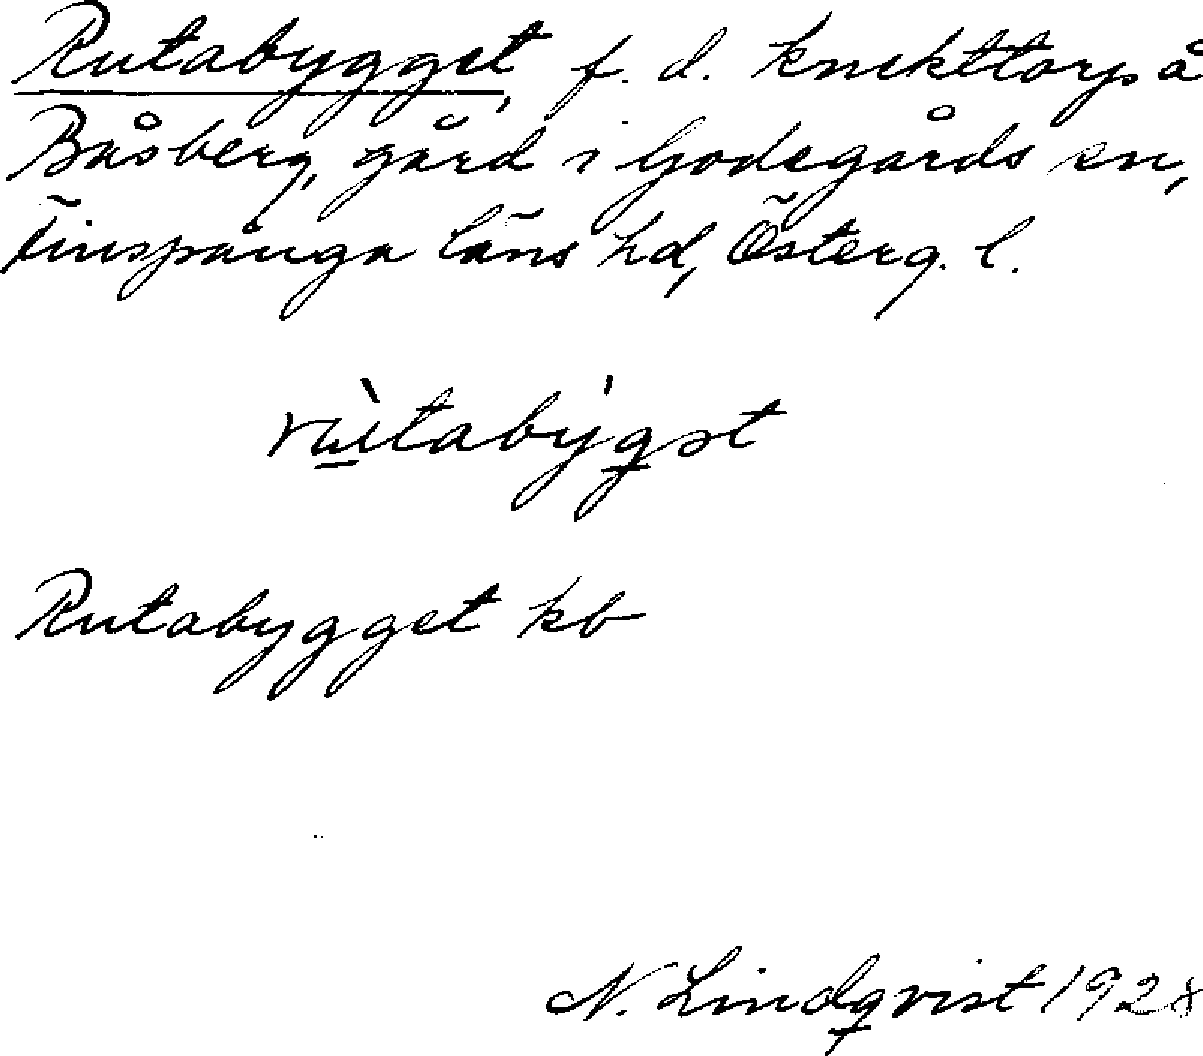 Rutabygget, f. d. knekttorp å
Båsberg, gård i Godegårds sn,
Finspånga läns hd, Österg. l.
rùtabýgət
Rutabygget kb
N. Lindqvist 1928